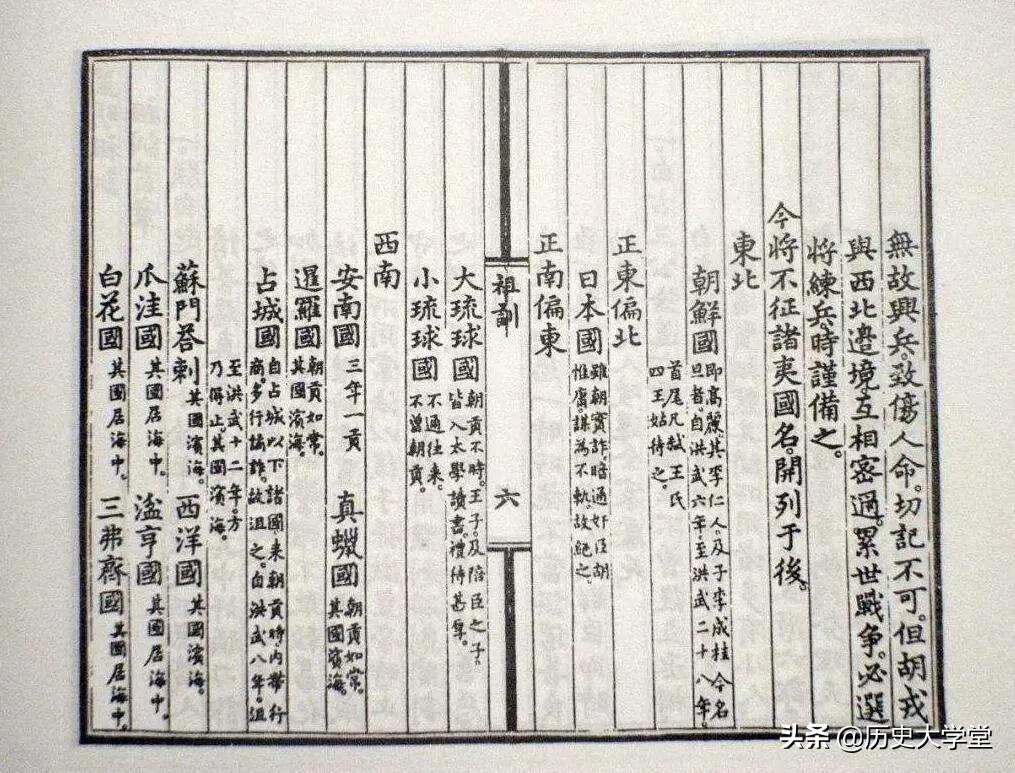 無故興兵。致傷人命。切記不可。但胡戎
與西北邊境互相密邇。累世戰爭。必選
將練兵。時謹備之。
今將不征諸夷國名。開列于後。
東北
朝鮮國
即高麗其李仁人。及子李成桂今名
旦者。自洪武六年。至洪武二十八年。
首尾凡弒王氏
四王姑待之。
正東偏北
日本國
雖朝實詐暗通奸臣胡
惟庸。謀為不軌。故絕之。
正南偏東
大琉球國
朝貢不時。王子。及陪臣之子。
皆入太學讀書。禮待甚厚。
小琉球國
不通往來。
不曾朝貢。
祖訓
六
西南
安南國
三年一貢
真蠟國
朝貢如常。
其國濱海。
暹羅國
朝貢如常。
其國濱海。
占城國
自占城以下諸國。來朝貢時。內帶行
商。多行譎詐。故沮之。自洪武八年。沮
至洪武十二年。方
乃得止其國濱海。
蘇門荅剌
其國濱海。
西洋國
其國濱海。
爪洼國
其國居海中。
湓亨國
其國居海中。
白花國
其國居海中。
三弗齊國
其國居海中。
头条 @历史大学堂